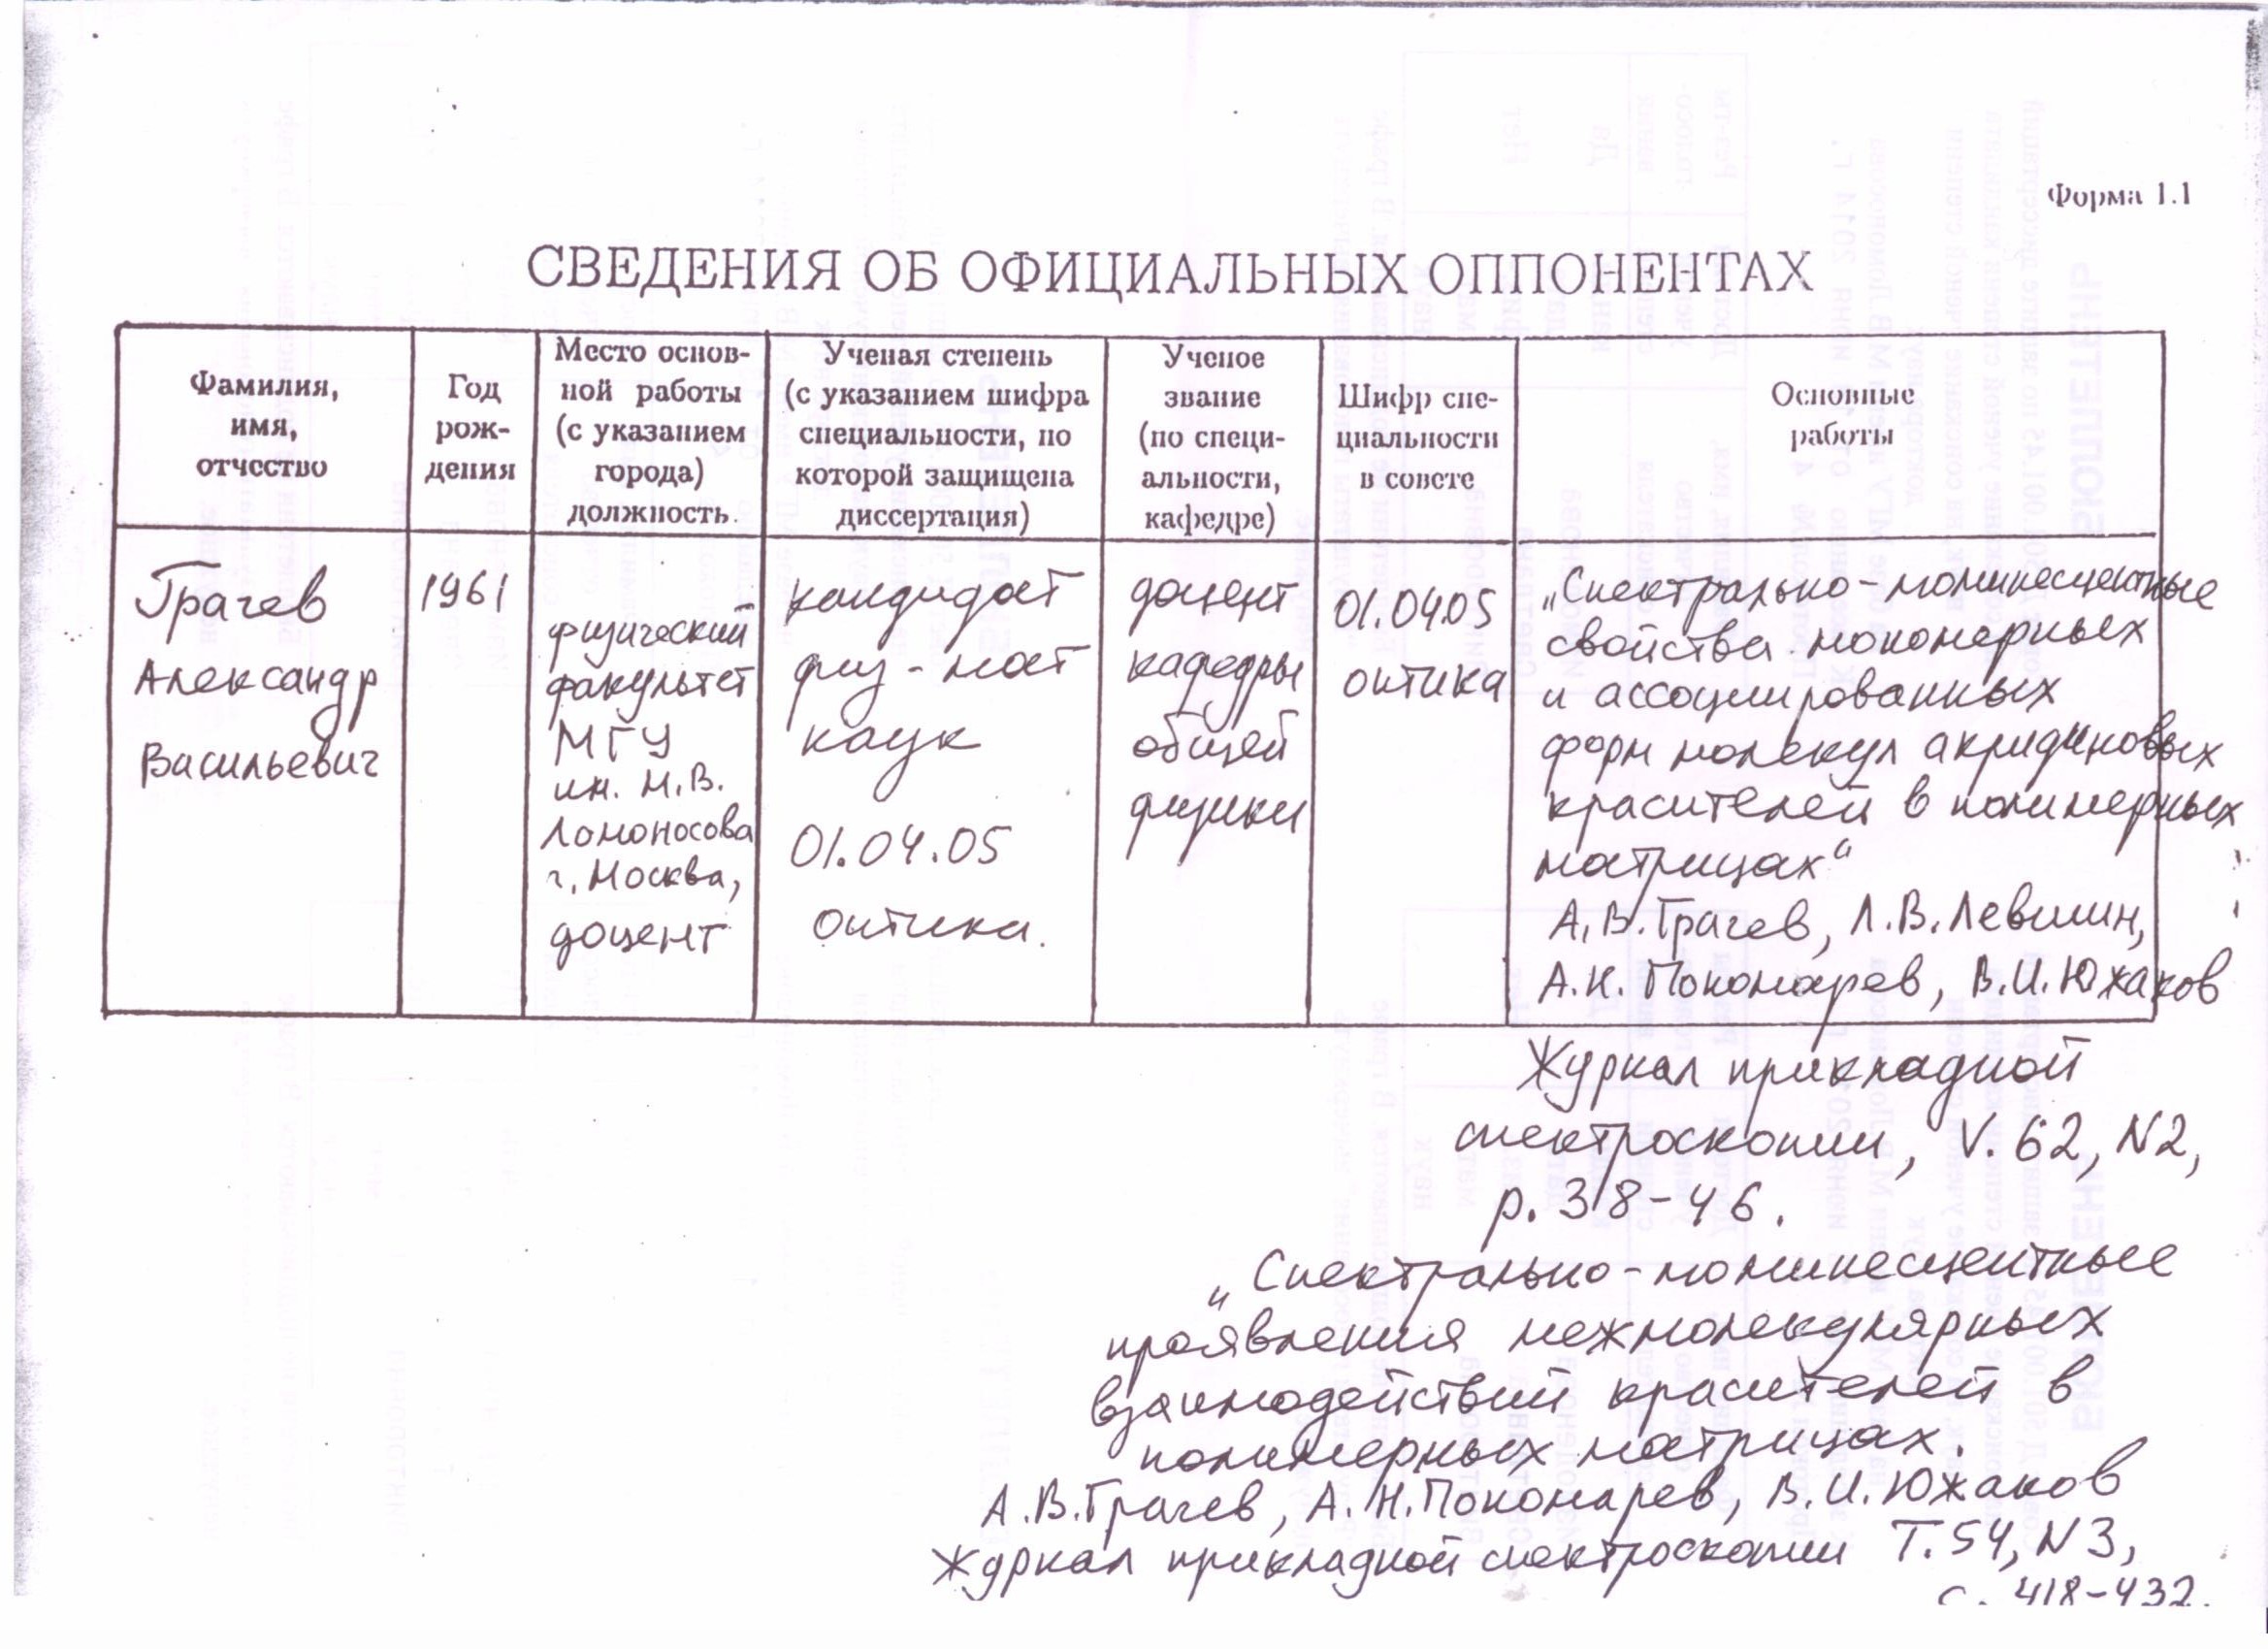 Форма 1.1
СВЕДЕНИЯ ОБ ОФИЦИАЛЬНЫХ ОППОНЕНТАХ
Фамилия,
имя,
отчество
Год
рож-
дения
Место основ-
ной работы
(с указанием
города)
должность
Ученая степень
(с указанием шифра
специальности, по
которой защищена
диссертация)
Ученое
звание
(по специ-
альности,
кафедре)
Шифр спе-
циальности
в совете
Основные
работы
Грачев
Александр
Васильевич
1961
физический
факультет
МГУ
им. М.В.
Ломоносова
г. Москва,
доцент
кандидат
физ-мат
наук
01.04.05
оптика.
доцент
кафедры
общей
физики
01.04.05
оптика
„Спектрально-люминесцентные
свойства мономерных
и ассоциированных
форм молекул акридиновых
красителей в полимерных
матрицах“
А.В.Грачев, Л.В.Левшин,
А.Н. Пономарев, В.И.Южаков
Журнал прикладной
спектроскопии, V. 62, N2,
p. 38-46.
„Спектрально-люминесцентные
проявления межмолекулярных
взаимодействий красителей в
полимерных матрицах.
А.В.Грачев, А.Н.Пономарев, В.И.Южаков
Журнал прикладной спектроскопии Т.54, N3,
с. 418-432.